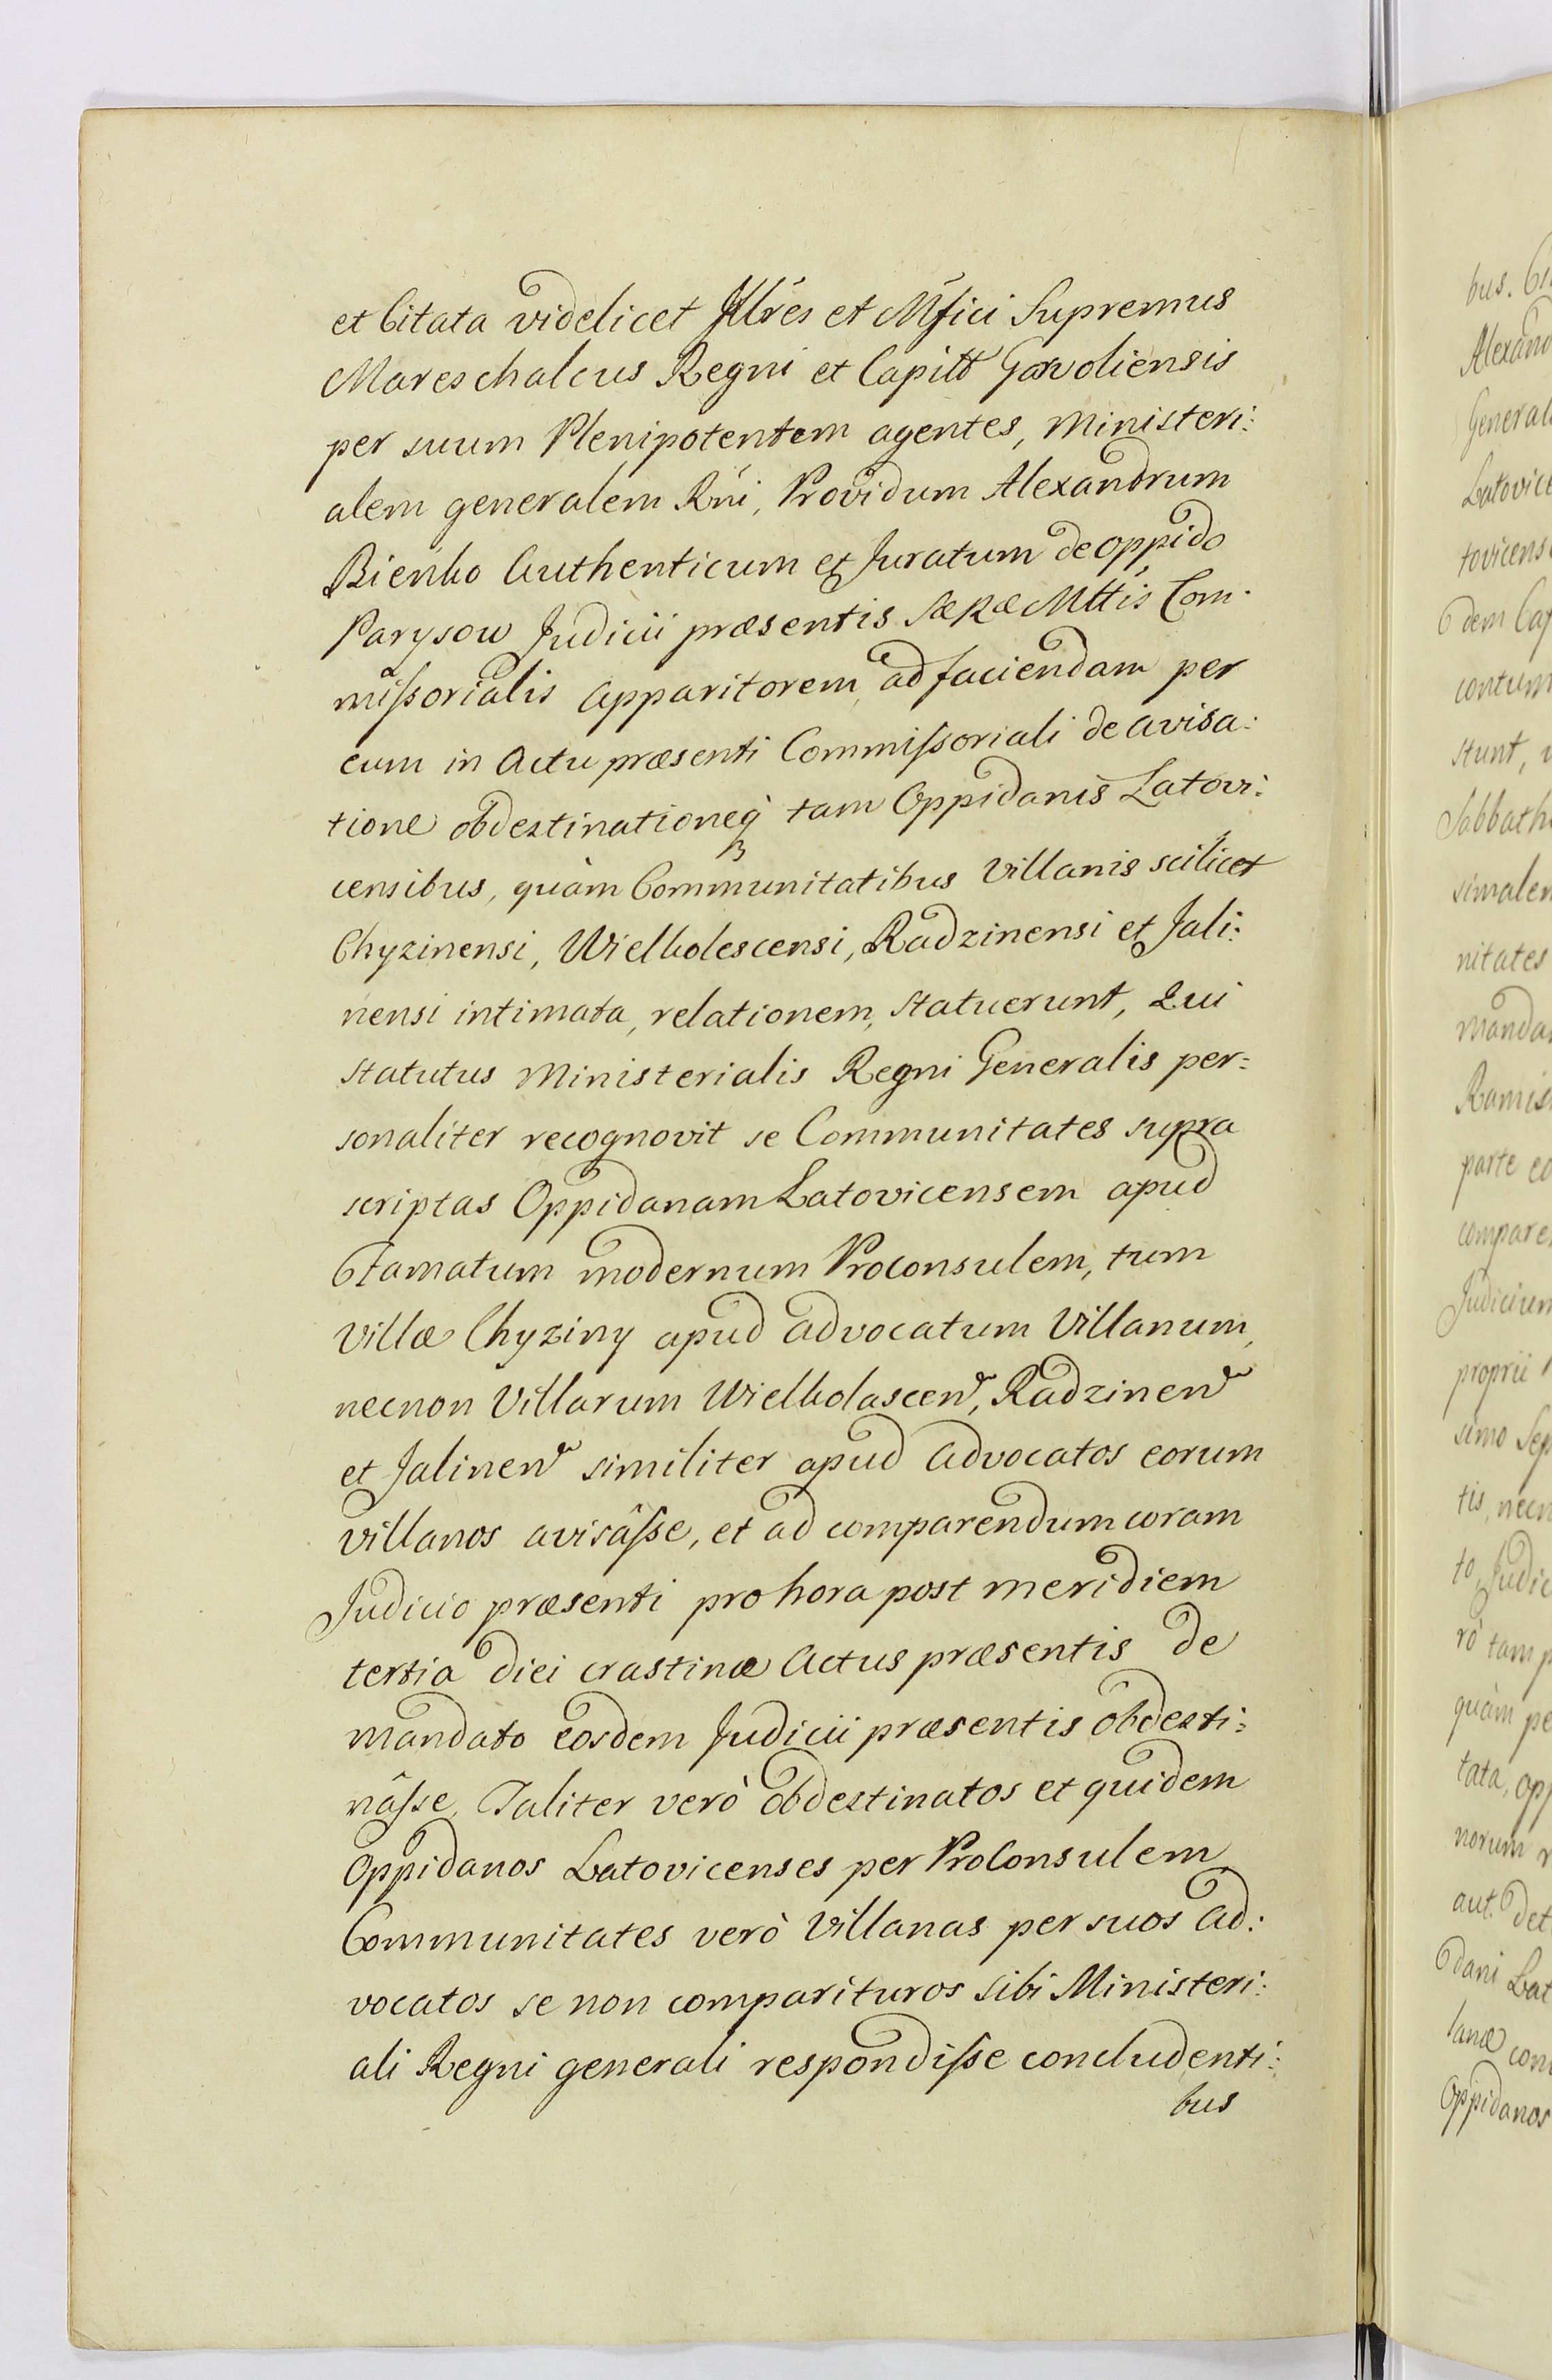 et Citata videlicet Jllres et Mfici Supremus
Mareschalcus Regni et Capitt Garvoliensis
per suum Plenipotentem agentes, Ministeri:
alem generalem Rni, Providum Alexandrum
Bieńko Authenticum et Juratum de oppido
Parysow Judicii præsentis SæRæMttis Com:
missorialis Apparitorem, ad faciendam per
eum in Actu præsenti Commissoriali de avisa:
tione obdestinationeq̀ tam Oppidanis Latovi:
censibus, quàm Communitatibus Villanis scilicet
Chyzinensi, Wielkolescensi, Radzinensi et Jali:
nensi intimata, relationem, statuerunt, Qui
statutus Ministerialis Regni Generalis per:
sonaliter recognovit se Communitates supra
scriptas Oppidanam Latovicensem apud
Ftamatum modernum Proconsulem, tum
Villæ Chyziny apud Advocatum Villanum,
necnon Villarum Wielkolascen, Radzinen
et Jalinen similiter apud Advocatos eorum
Villanos avisâsse, et ad comparendum coram
Judicio præsenti pro hora post meridiem
tertia diei crastinæ Actus præsentis de
mandato eosdem Judicii præsentis obdesti:
nâsse, Taliter verò obdestinatos et quidem
Oppidanos Latovicenses per ProConsulem
Communitates verò Villanas per suos Ad:
vocatos se non comparituros sibi Ministeri:
ali Regni generali respondisse concludenti:
bus
bus.
Alexand
General
Latovice
tovicens
dem Cap
contum
stunt,
Sabbath
simalem
nitates
manda
Ramis
parte eo
compare
Judicium
proprii
simo Sep
tis, necn
to, Judic
rò tam p
quàm pe
tata, opp
norum
aut. det
dani Lat
lanæ com
Oppidanos